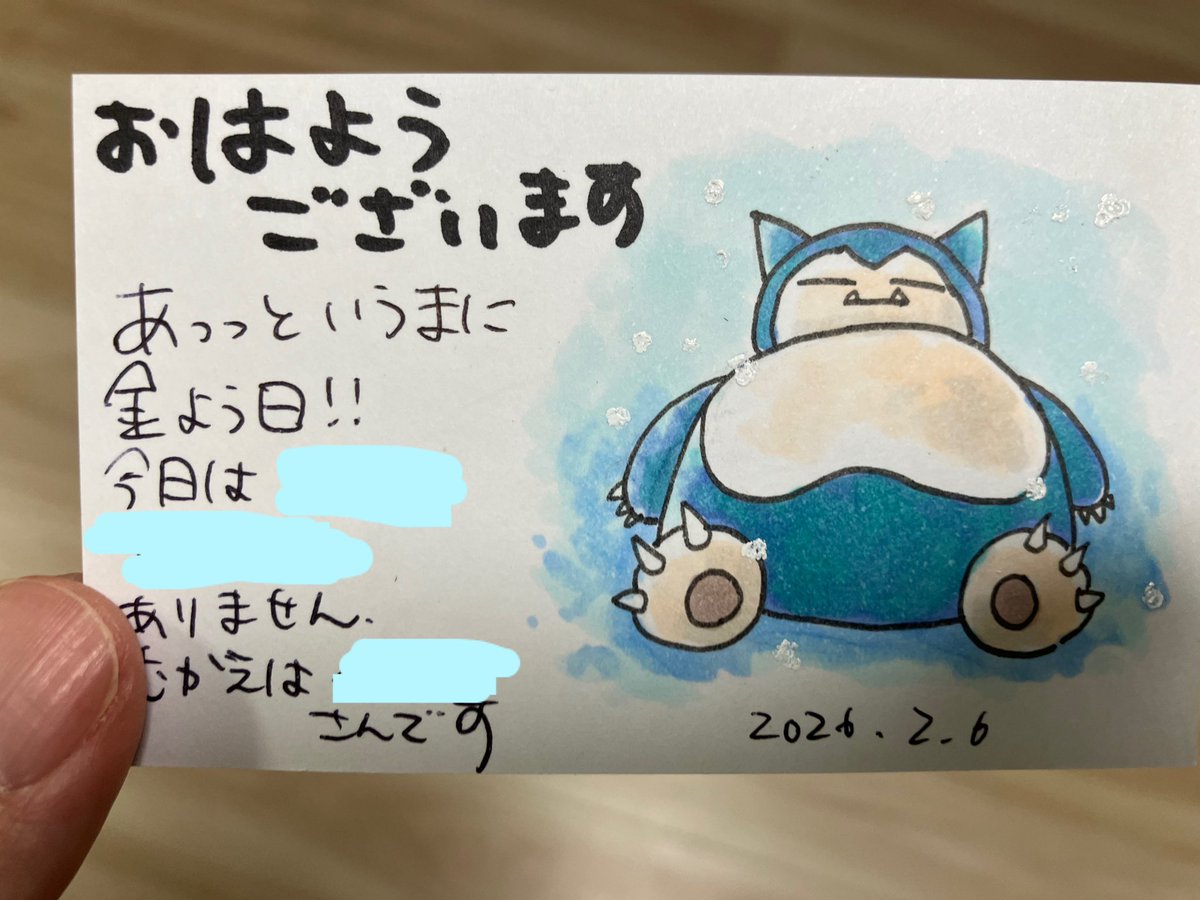 おはよう
ございます
あっっというまに
金よう日!!
今日は
ありません.
むかえは
さんです
2026.2.6